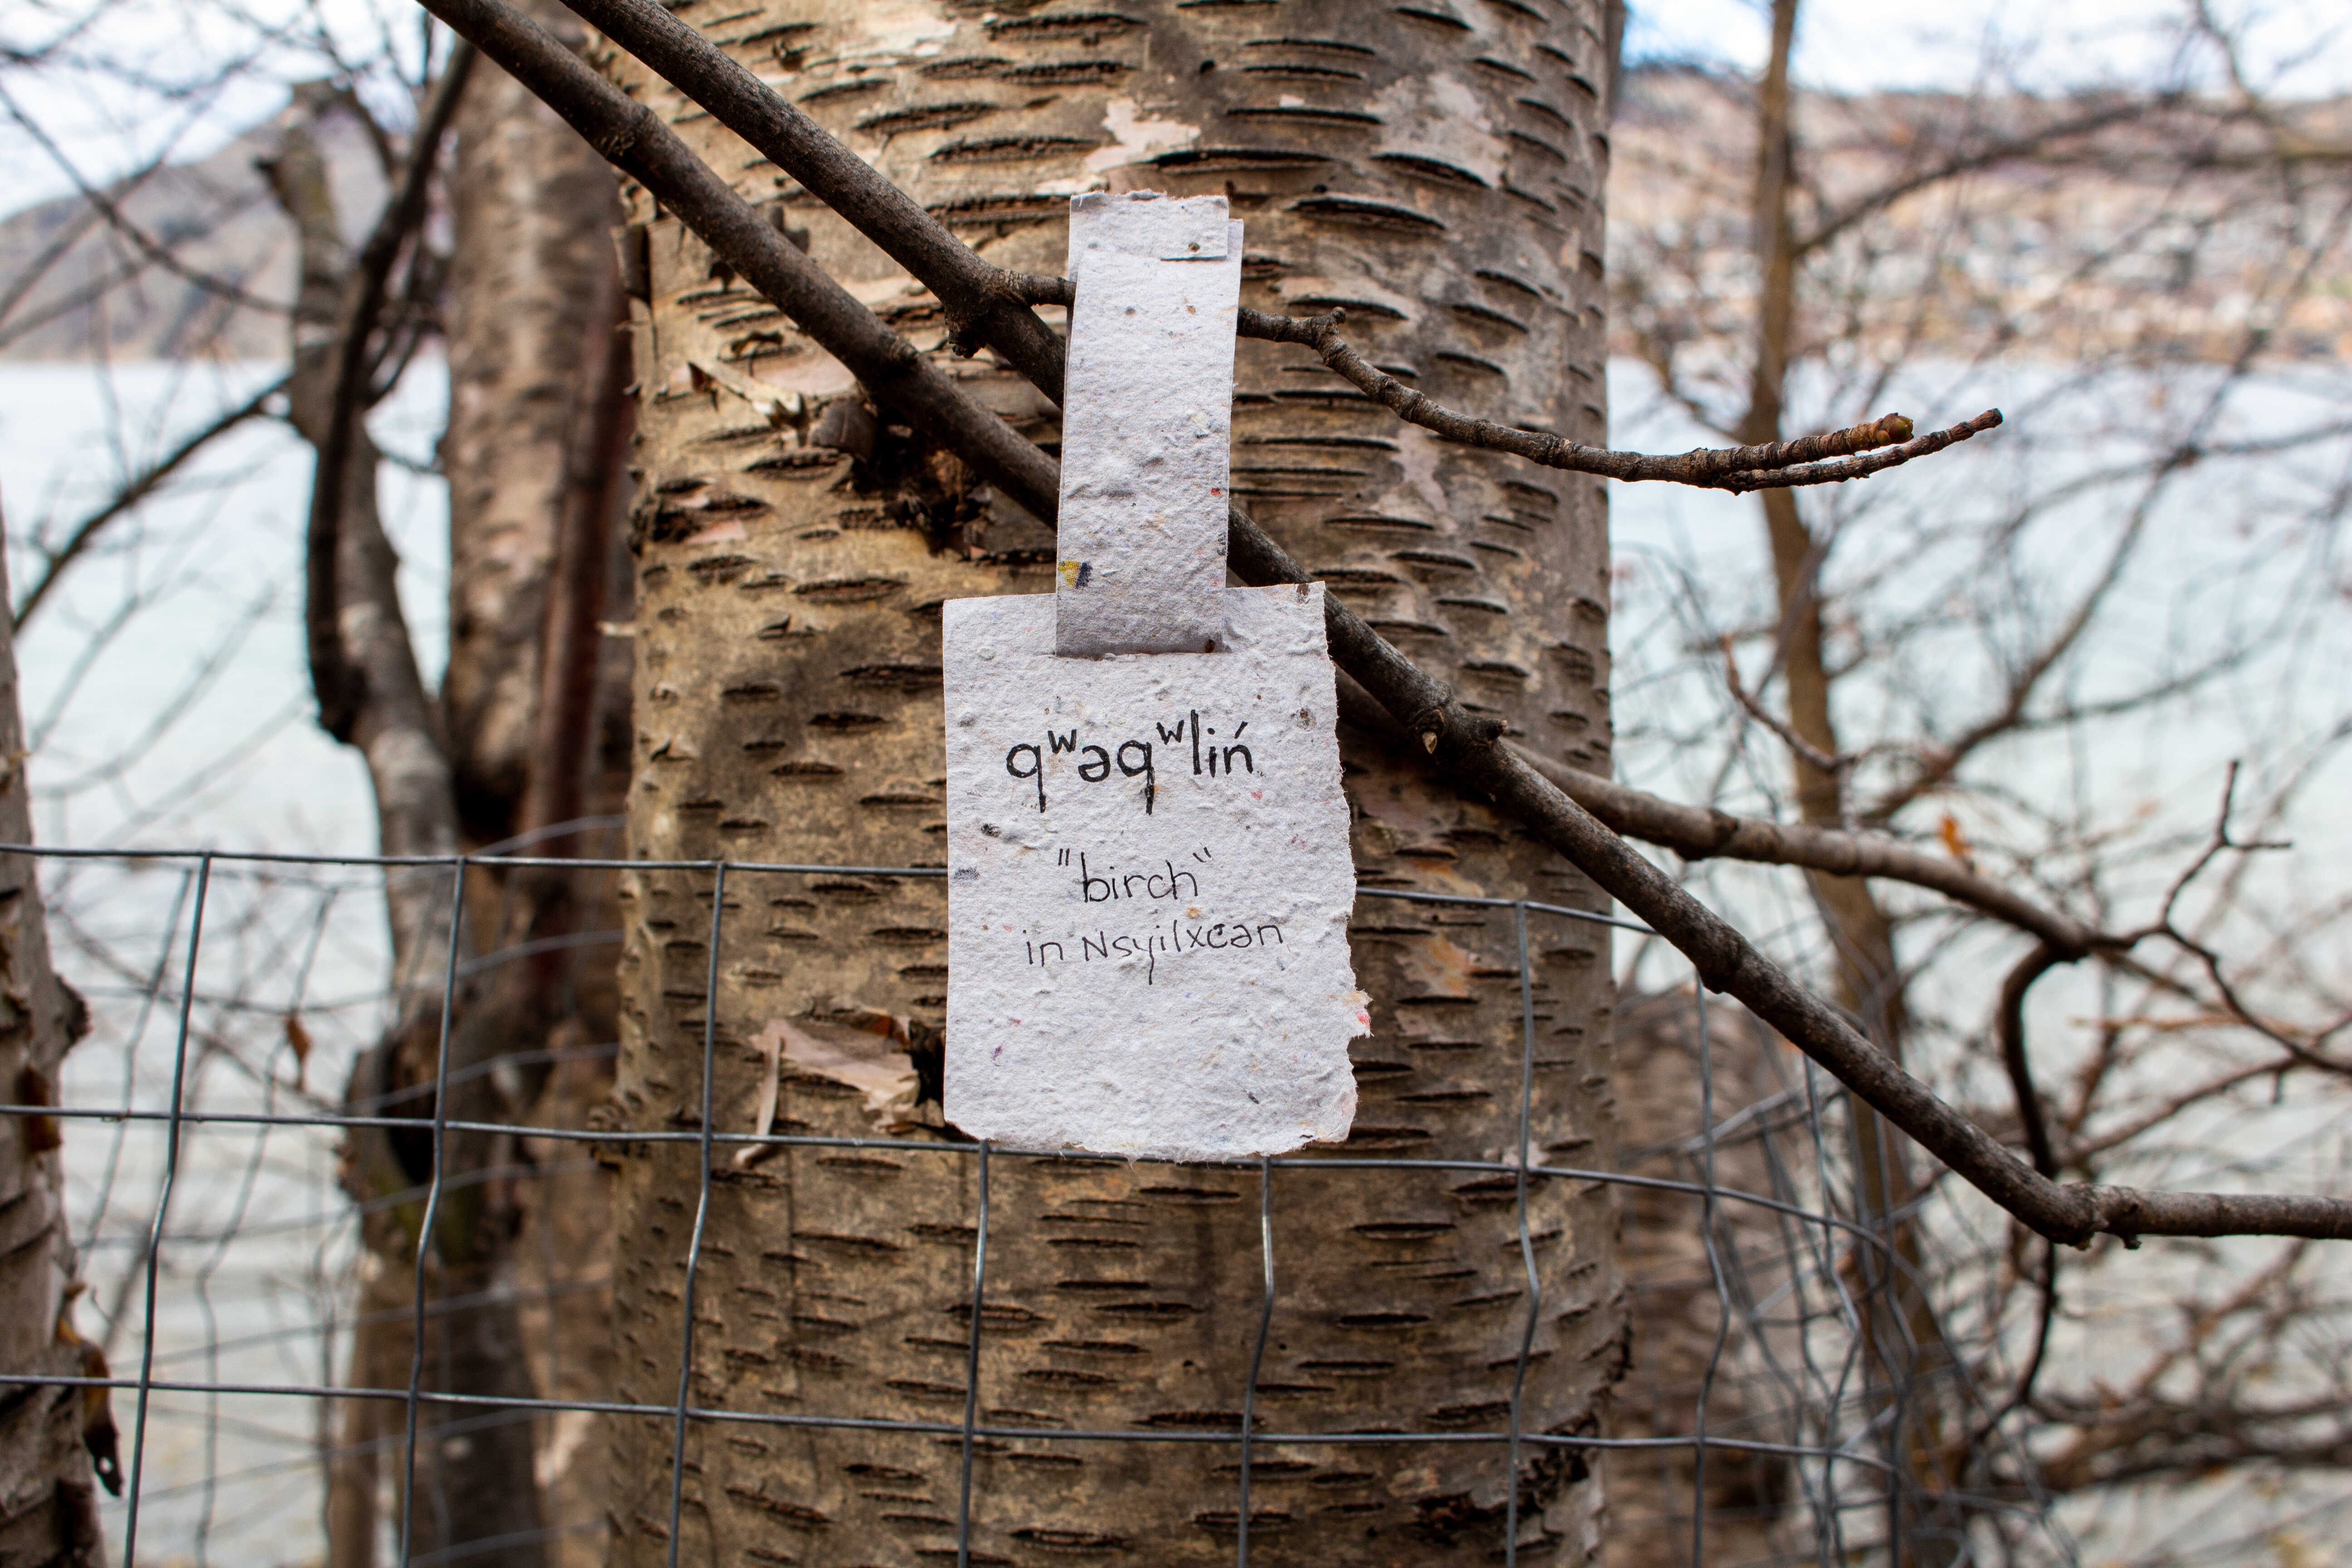 qʷəqʷlin̓
"birch"
in Nsyilxcən